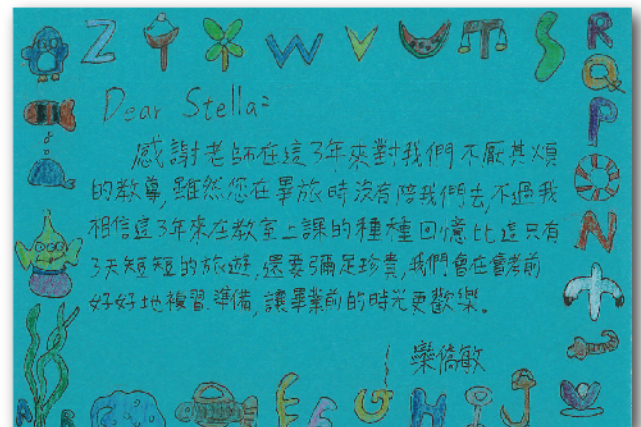 Z Y X W V U T S
R
Q
P
O
N
M
Dear Stella:
感謝老師在這3年來對我們不厭其煩
的教導,雖然您在畢旅時沒有陪我們去,不過我
相信這3年來在教室上課的種種回憶比這只有
3天短短的旅遊,還要彌足珍貴,我們會在會考前
好好地複習、準備,讓畢業前的時光更歡樂。
欒僑敏
A B E F G H I J